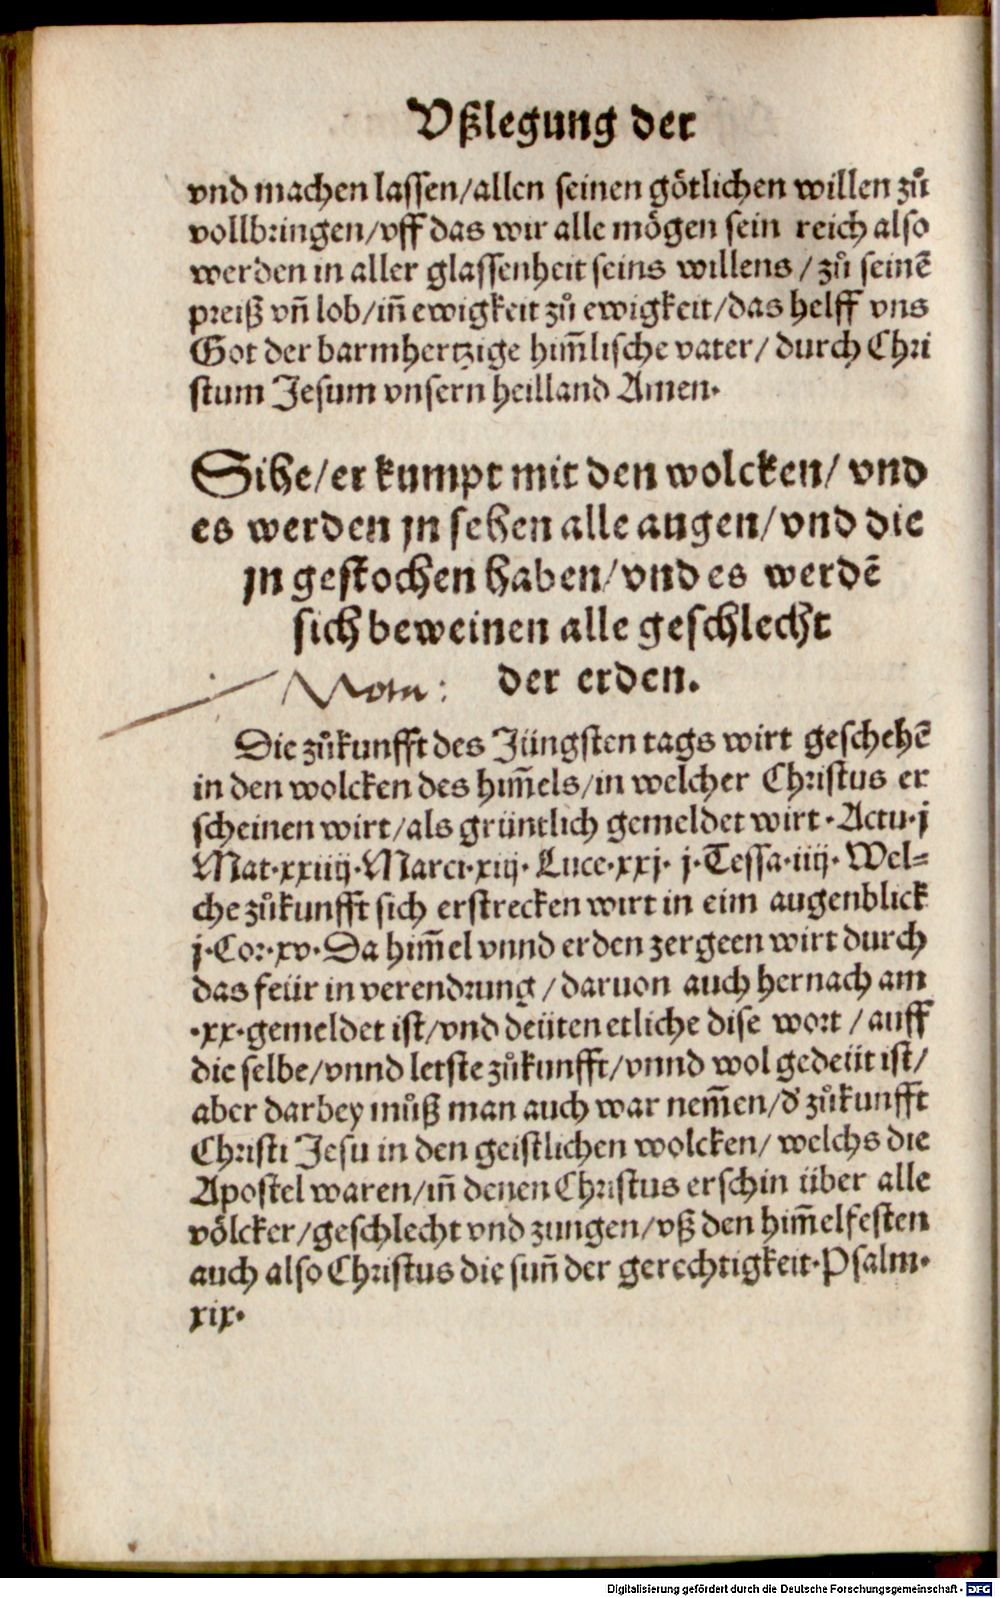 Vßlegung der
vnd machen lassen/allen seinen götlichen willen zů
vollbringen/vff das wir alle mögen sein reich also
werden in aller glassenheit seins willens/zů seinẽ
preiß vñ lob/iñ ewigkeit zů ewigkeit/das helff vns
Got der barmhertzige him̃lische vater/durch Chri
stum Jesum vnsern heilland Amen.
Sihe/er kumpt mit den wolcken/vnd
es werden jn sehen alle augen/vnd die
jn gestochen haben/vnd es werdẽ
sich beweinen alle geschlecht
der erden.
Nota:
Die zůkunfft des Jüngsten tags wirt geschehẽ
in den wolcken des him̃els/in welcher Christus er
scheinen wirt/als grüntlich gemeldet wirt.Actu.j
Mat.xxiiij.Marci.xiij.Luce.xxj.j.Tessa.iiij.Wel=
che zůkunfft sich erstrecken wirt in eim augenblick
j.Cor.xv.Da him̃el vnnd erden zergeen wirt durch
das feür in verendrung/daruon auch hernach am
.xx.gemeldet ist/vnd deüten etliche dise wort/auff
die selbe/vnnd letste zůkunfft/vnnd wol gedeüt ist/
aber darbey můß man auch war nem̃en/d' zůkunfft
Christi Jesu in den geistlichen wolcken/welchs die
Apostel waren/iñ denen Christus erschin über alle
völcker/geschlecht vnd zungen/vß den him̃elfesten
auch also Christus die suñ der gerechtigkeit.Psalm.
xix.
Digitalisierung gefördert durch die Deutsche Forschungsgemeinschaft - DFG